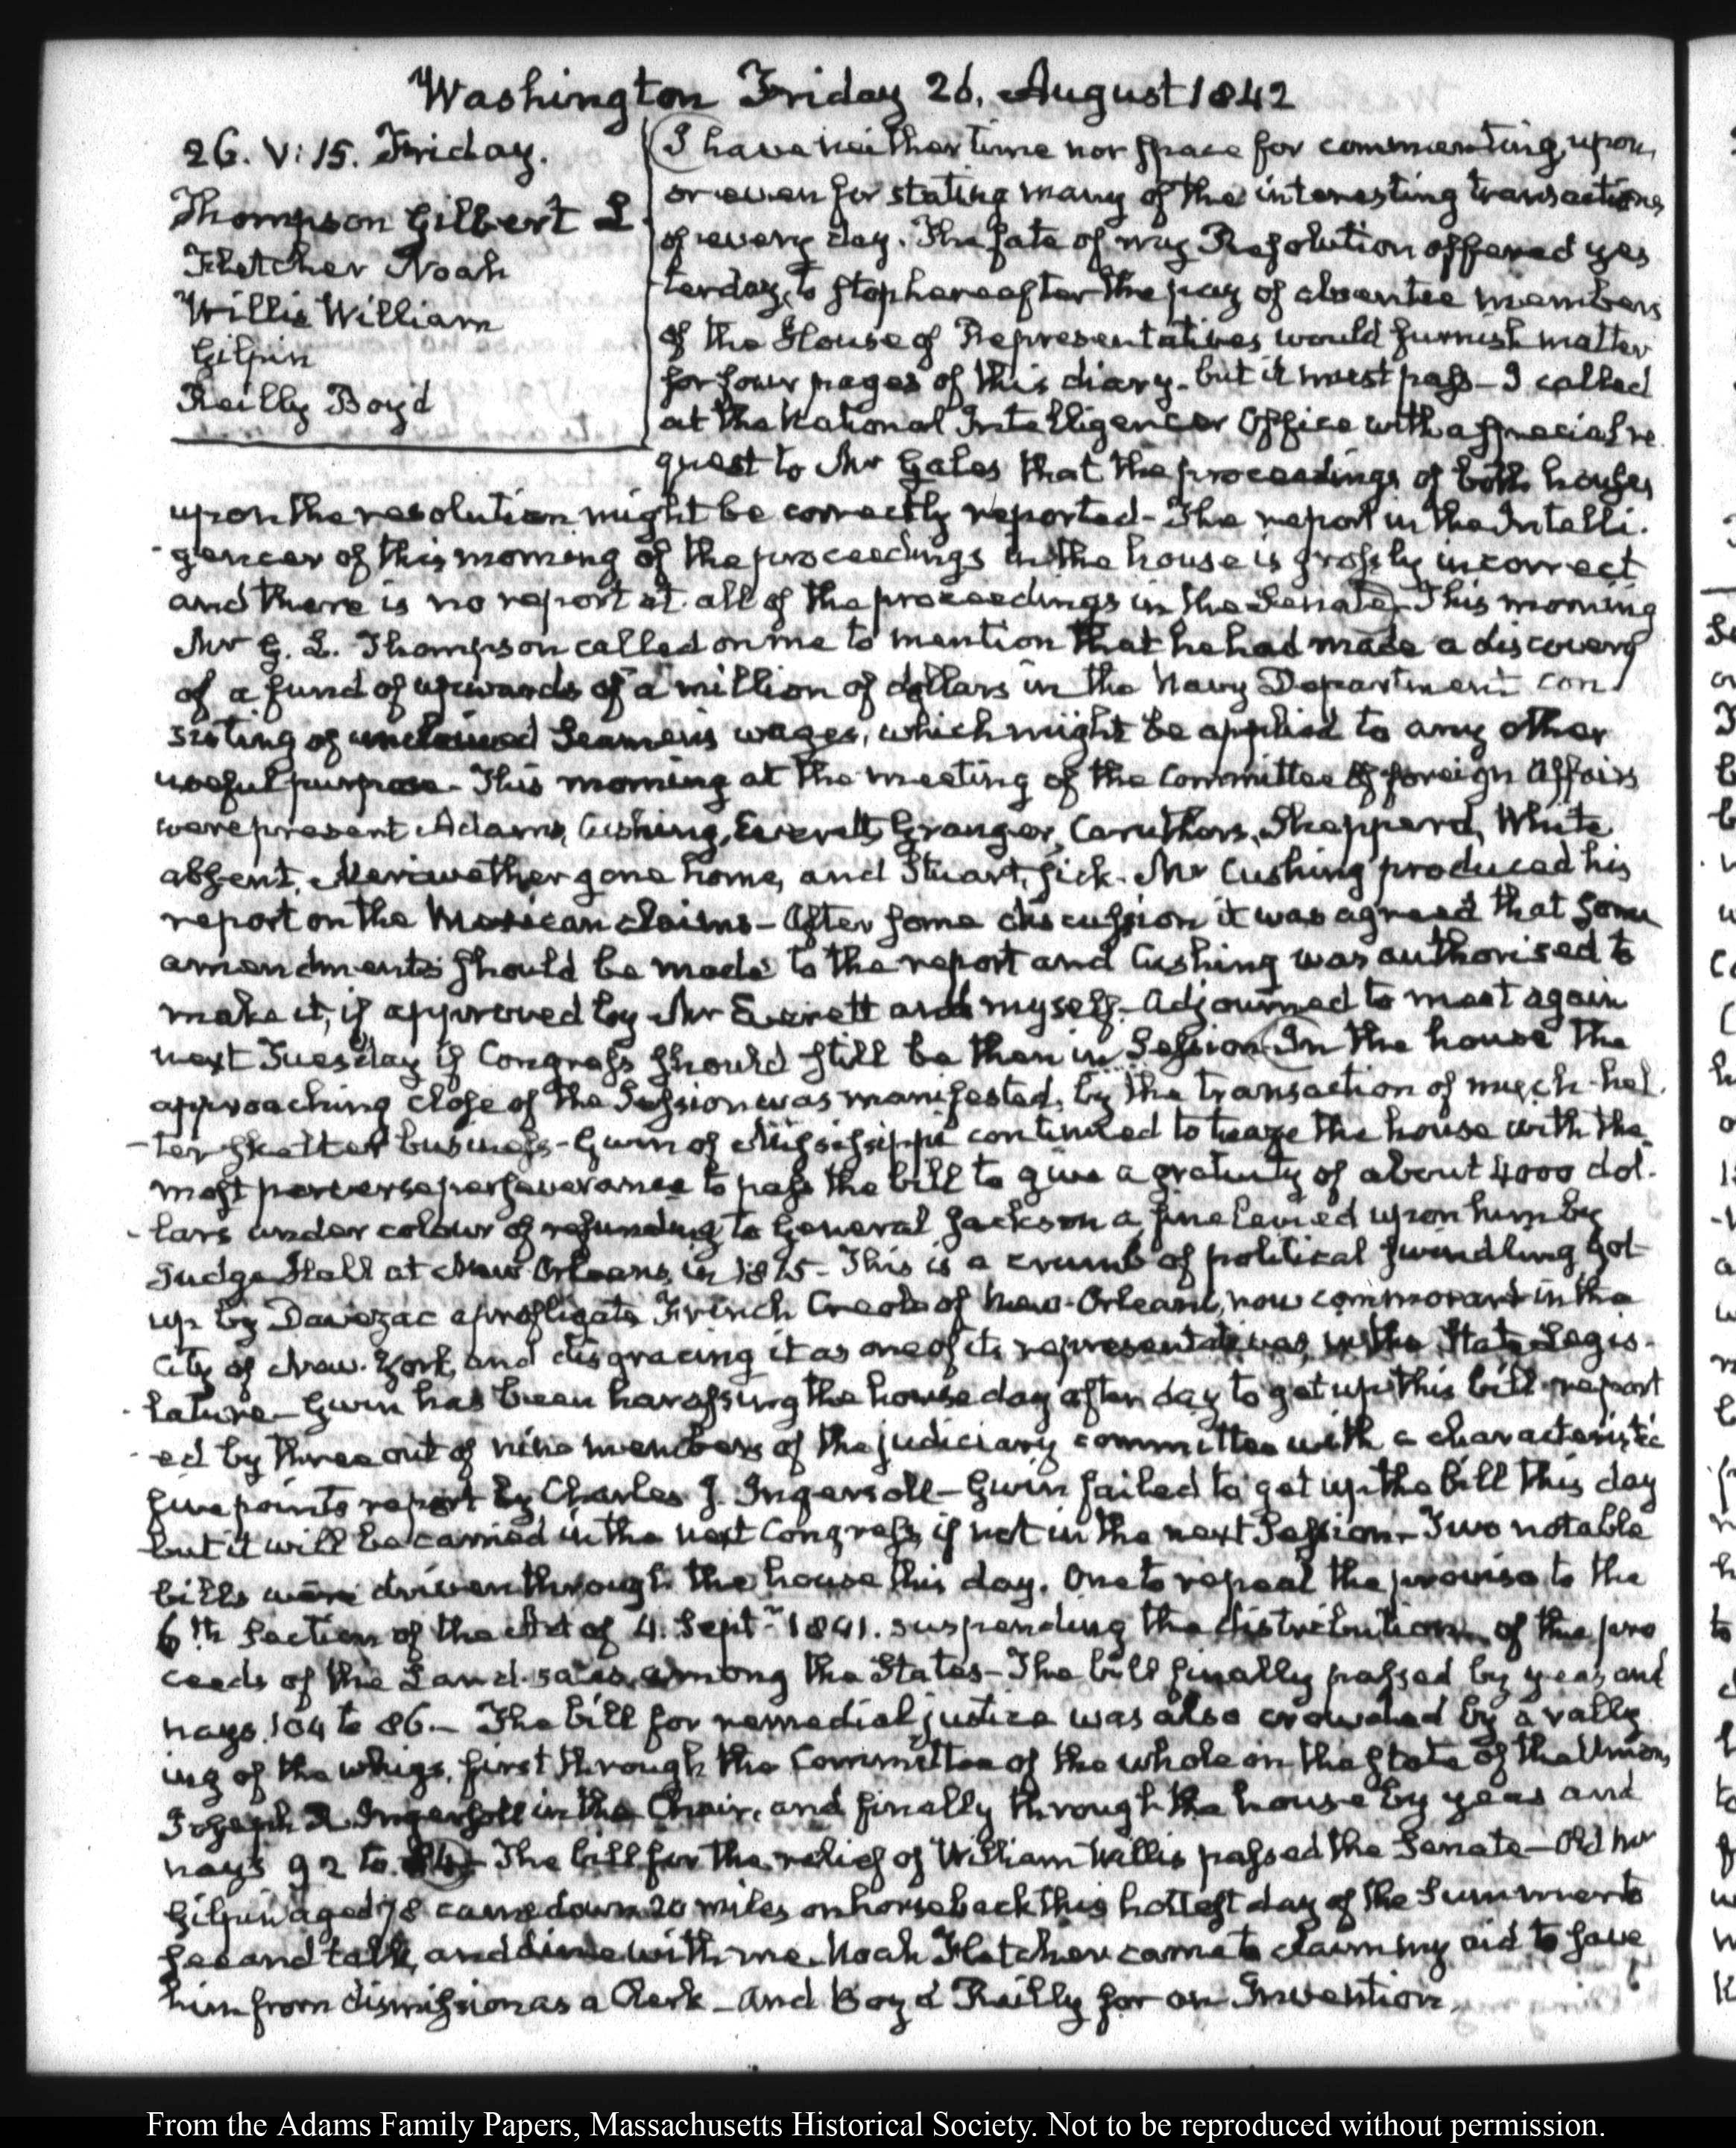 Washington Friday 26. August 1842
26. V: 15. Friday.
Thompson Gilbert L
Fletcher Noah
Willis William
Gilpin
Reilly Boyd
I have neither time nor space for commenting upon,
or even for stating many of the interesting transactions
of every day. The fate of my Resolution offered yes
terday, to stop hereafter the pay of absentee members
of the House of Representatives would furnish matter
for four pages of this diary - but it must pass - I called
at the National Intelligencer Office with a special re
quest to Mr Gales that the proceedings of both houses
upon the resolution might be correctly reported - The report in the Intelli-
gencer of this morning of the proceedings in the house is grossly incorrect
and there is no report at all of the proceedings in the Senate. This morning
Mr G. L. Thompson called on me to mention that he had made a discovery
of a fund of upwards of a million of dollars in the Navy Department con
sisting of unclaimed Seamen's wages, which might be applied to any other
useful purpose - This morning at the meeting of the Committee of foreign Affairs
were present Adams, Cushing, Everett, Granger, Caruthers, Shepperd, White
absent, Meriwether gone home, and Stuart, sick - Mr Cushing produced his
report on the Mexican claims - After some discussion it was agreed that some
amendments should be made to the report and Cushing was authorised to
make it, if approved by Mr Everett and myself - Adjourned to meet again
next Tuesday if Congress should still be then in Session. In the house the
approaching close of the Session was manifested, by the transaction of much hel-
-ter skelter business - Gwin of Mississippi continued to teaze the house with the
most perverse perseverance to pass the bill to give a gratuity of about 4000 dol-
-lars under colour of refunding to General Jackson a fine levied upon him by
Judge Hall at New Orleans, in 1815 - This is a crumb of political swindling got
up by Davezac a profligate French Creole of New-Orleans, now commorant in the
City of New-York, and disgracing it as one of its representatives, in the State Legis-
-lature - Gwin has been harassing the house day after day to get up this bill report
-ed by three out of nine members of the judiciary committee with a characteristic
five points report by Charles J. Ingersoll - Gwin failed to get up the bill this day
but it will be carried in the next Congress, if not in the next Session - Two notable
bills were driven through the house this day. One to repeal the proviso to the
6th Section of the Act of 4. Septr 1841. suspending the distribution of the pro
ceeds of the Land sales, among the States - The bill finally passed by yeas and
nays 104 to 86. - The bill for remedial justice was also crowded by a rally
ing of the whigs, first through the Committee of the whole on the state of the Union,
Joseph R Ingersoll in the Chair, and finally through the house by yeas and
nays 92 to - The bill for the relief of William Willis passed the Senate - Old Mr
Gilpin aged 78 came down 20 miles on horseback this hottest day of the Summer to
see and talk, and dine with me. Noah Fletcher came to claim my aid to save
him from dismission as a Clerk - and Boyd Reilly for an Invention.
From the Adams Family Papers, Massachusetts Historical Society. Not to be reproduced without permission.